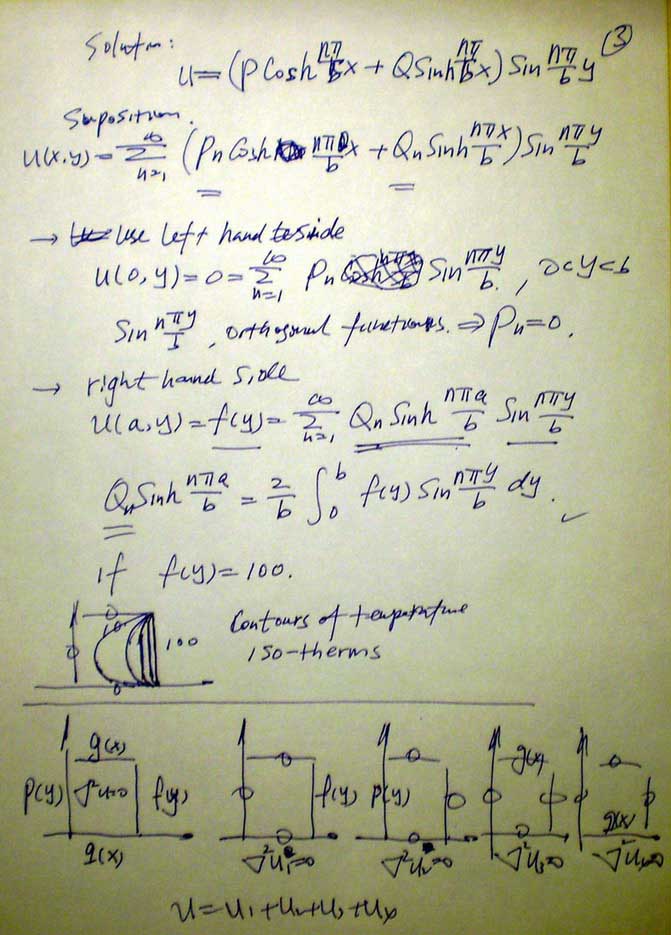 ③
Solution:
U = (P Cosh nπ/b x + Q Sinh nπ/b x) Sin nπ/b y
Suposition.
U(x,y) = ∞ Σ n=1 (Pn Cosh nπ/b x + Qn Sinh nπx/b) Sin nπy/b
→ Use left hand side
U(0,y) = 0 = ∞ Σ n=1 Pn Sin nπy/b , 0<y<b
Sin nπy/b , orthogonal functions. ⇒ Pn = 0.
→ right hand side
U(a,y) = f(y) = ∞ Σ n=1 Qn Sinh nπa/b Sin nπy/b
Qn Sinh nπa/b = 2/b ∫0^b f(y) Sin nπy/b dy. ✓
if f(y) = 100.
0 10 0 100 0 Contours of temperature
iso-therms
g(x) 0 0 g(x) 0
p(y) ∇²u=0 f(y) 0 f(y) p(y) 0 0 0 0 0
q(x) 0 0 0 q(x)
∇²U1=0 ∇²U2=0 ∇²U3=0 ∇²U4=0
U = U1 + U2 + U3 + U4